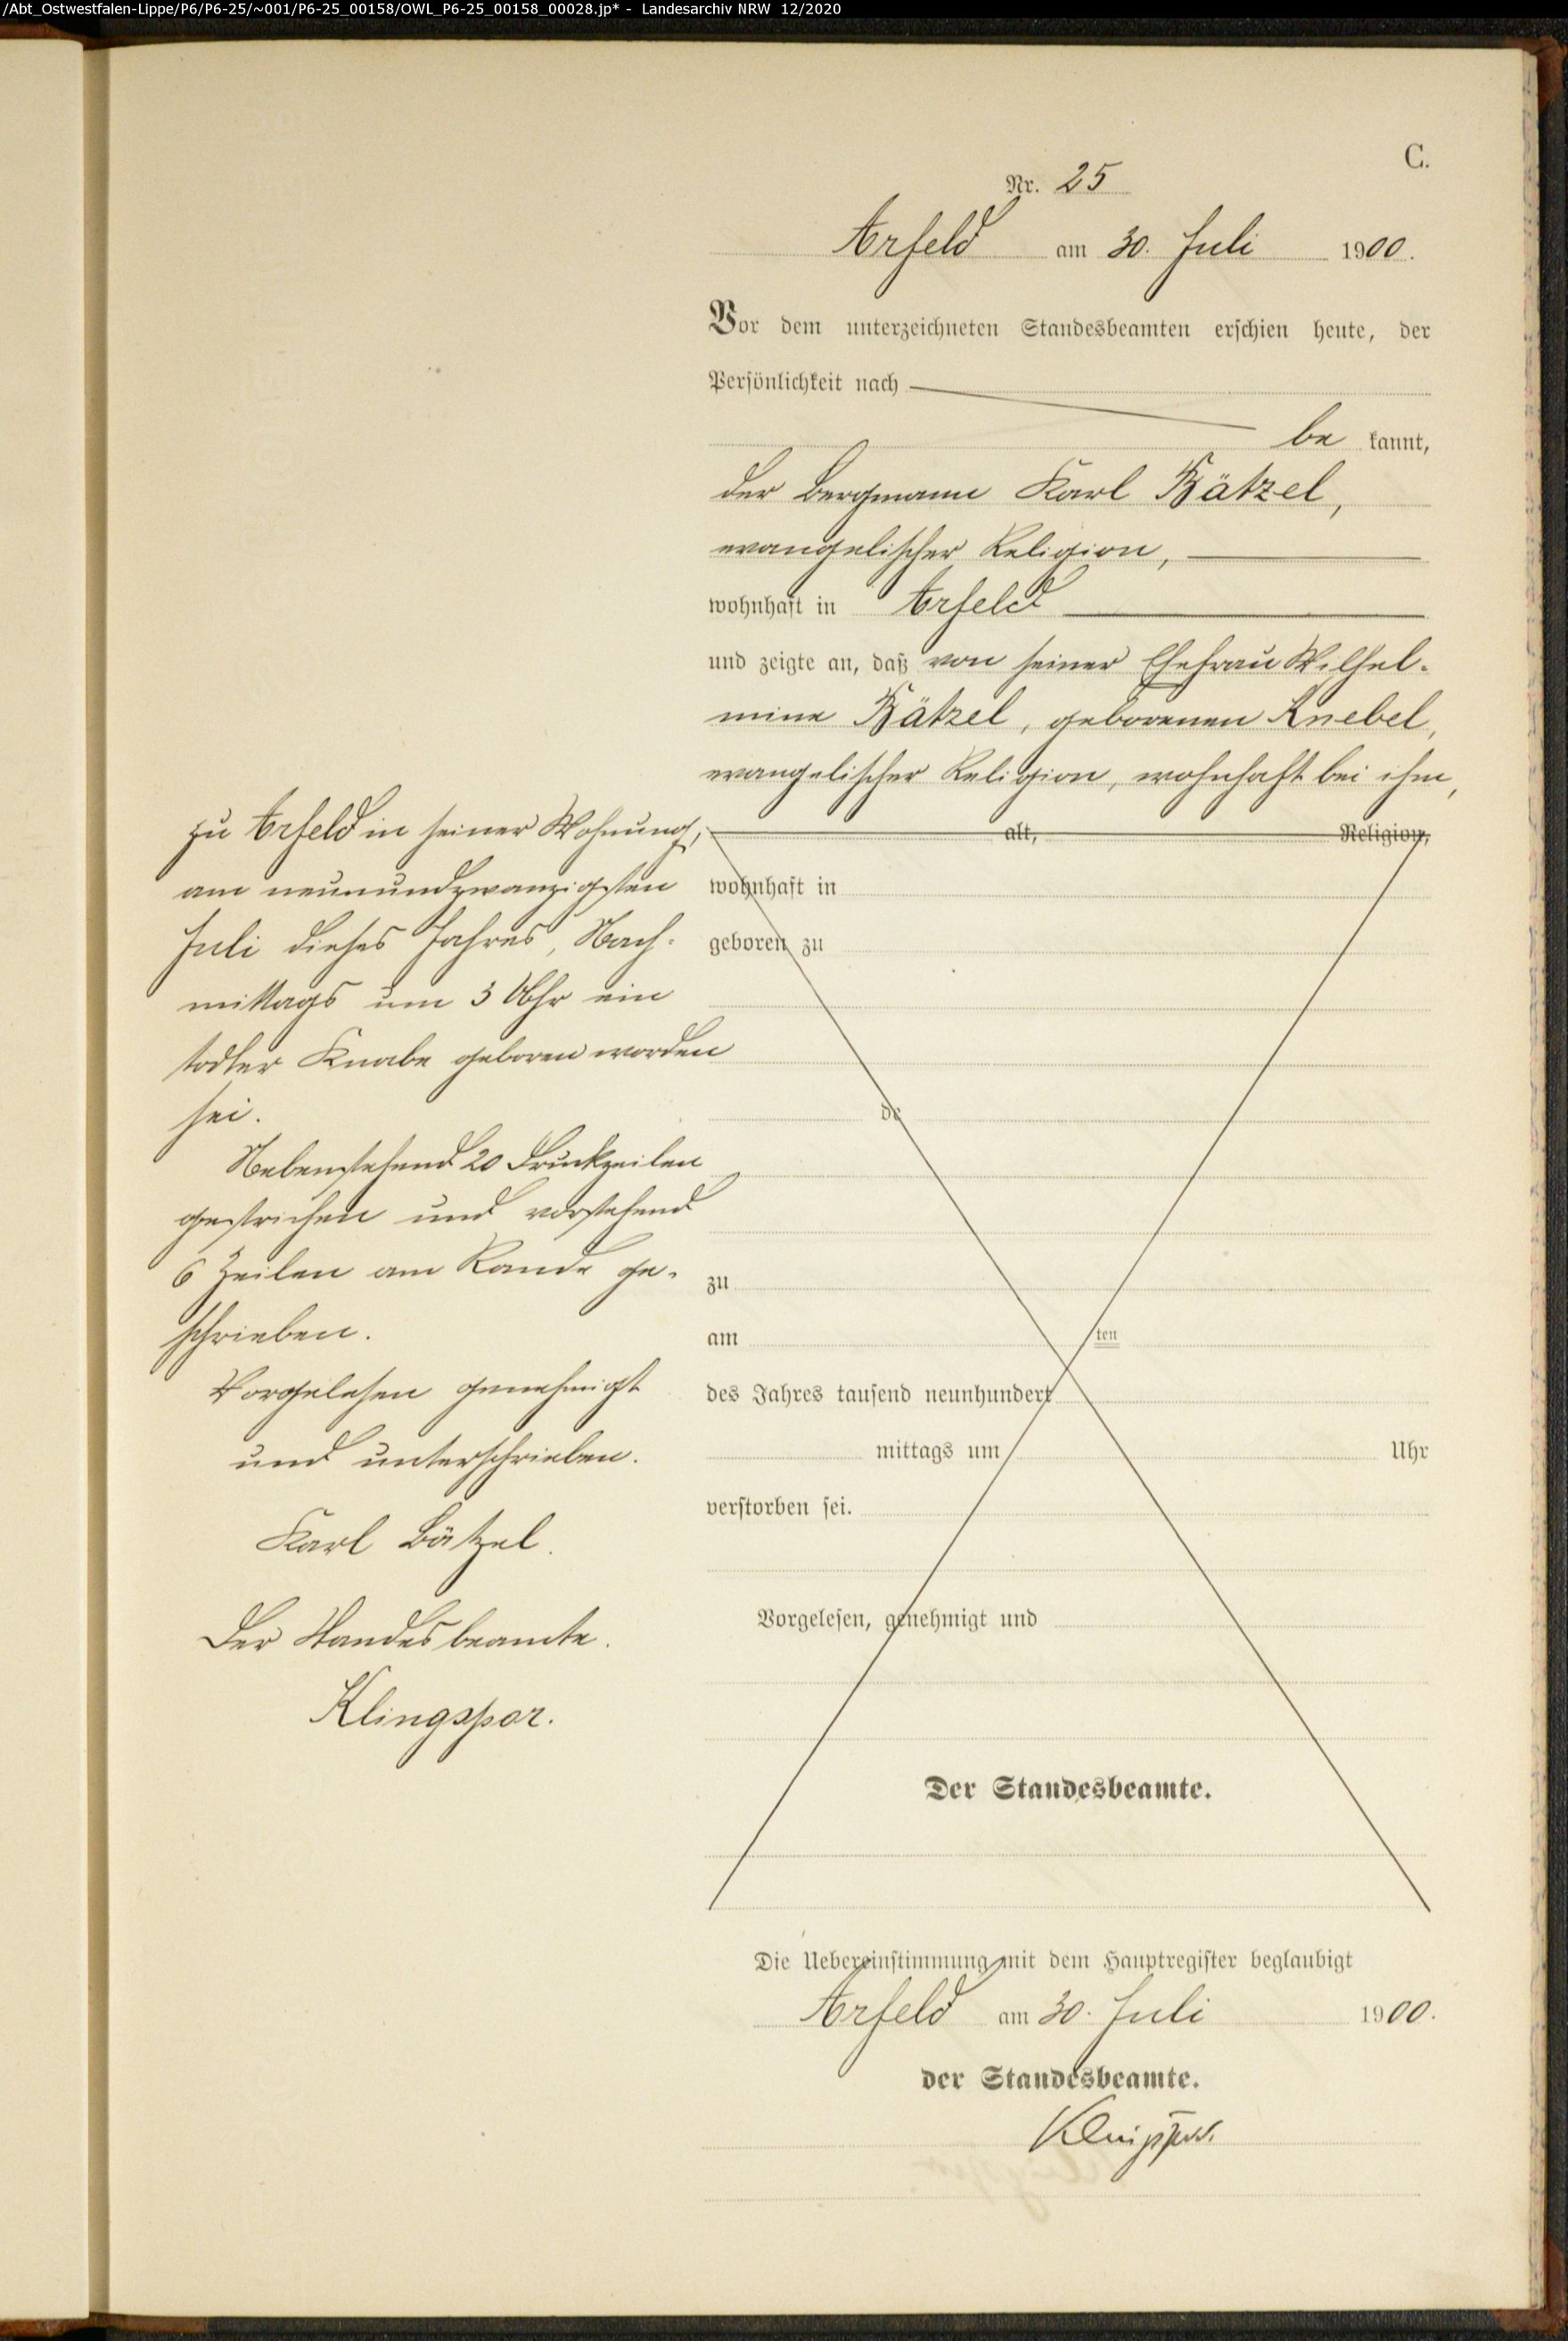 /Abt_Ostwestfalen-Lippe/P6/P6-25/~001/P6-25_00158/OWL_P6-25_00158_00028.jp* - Landesarchiv NRW 12/2020
C.
Nr. 25
Arfeld am 30. Juli 1900.
Vor dem unterzeichneten Standesbeamten erschien heute, der
Persönlichkeit nach
be kannt,
der Bergmann Karl Bätzel,
evangelischer Religion,
wohnhaft in Arfeld
und zeigte an, daß von seiner Ehefrau Wilhel-
mine Bätzel, geborenen Knebel,
evangelischer Religion, wohnhaft bei ihm,
alt, Religion,
wohnhaft in
geboren zu
de
zu
am ten
des Jahres tausend neunhundert
mittags um Uhr
verstorben sei.
Vorgelesen, genehmigt und
Der Standesbeamte.
zu Arfeld in seiner Wohnung,
am neunundzwanzigsten
Juli dieses Jahres, Nach-
mittags um 3 Uhr ein
todter Knabe geboren worden
sei.
Nebenstehend 20 Druckzeilen
gestrichen und vorstehend
6 Zeilen am Rande ge-
schrieben.
Vorgelesen genehmigt
und unterschrieben.
Karl Bätzel.
Der Standesbeamte.
Klingspor.
Die Uebereinstimmung mit dem Hauptregister beglaubigt
Arfeld am 30. Juli 1900.
der Standesbeamte.
Klingspor.